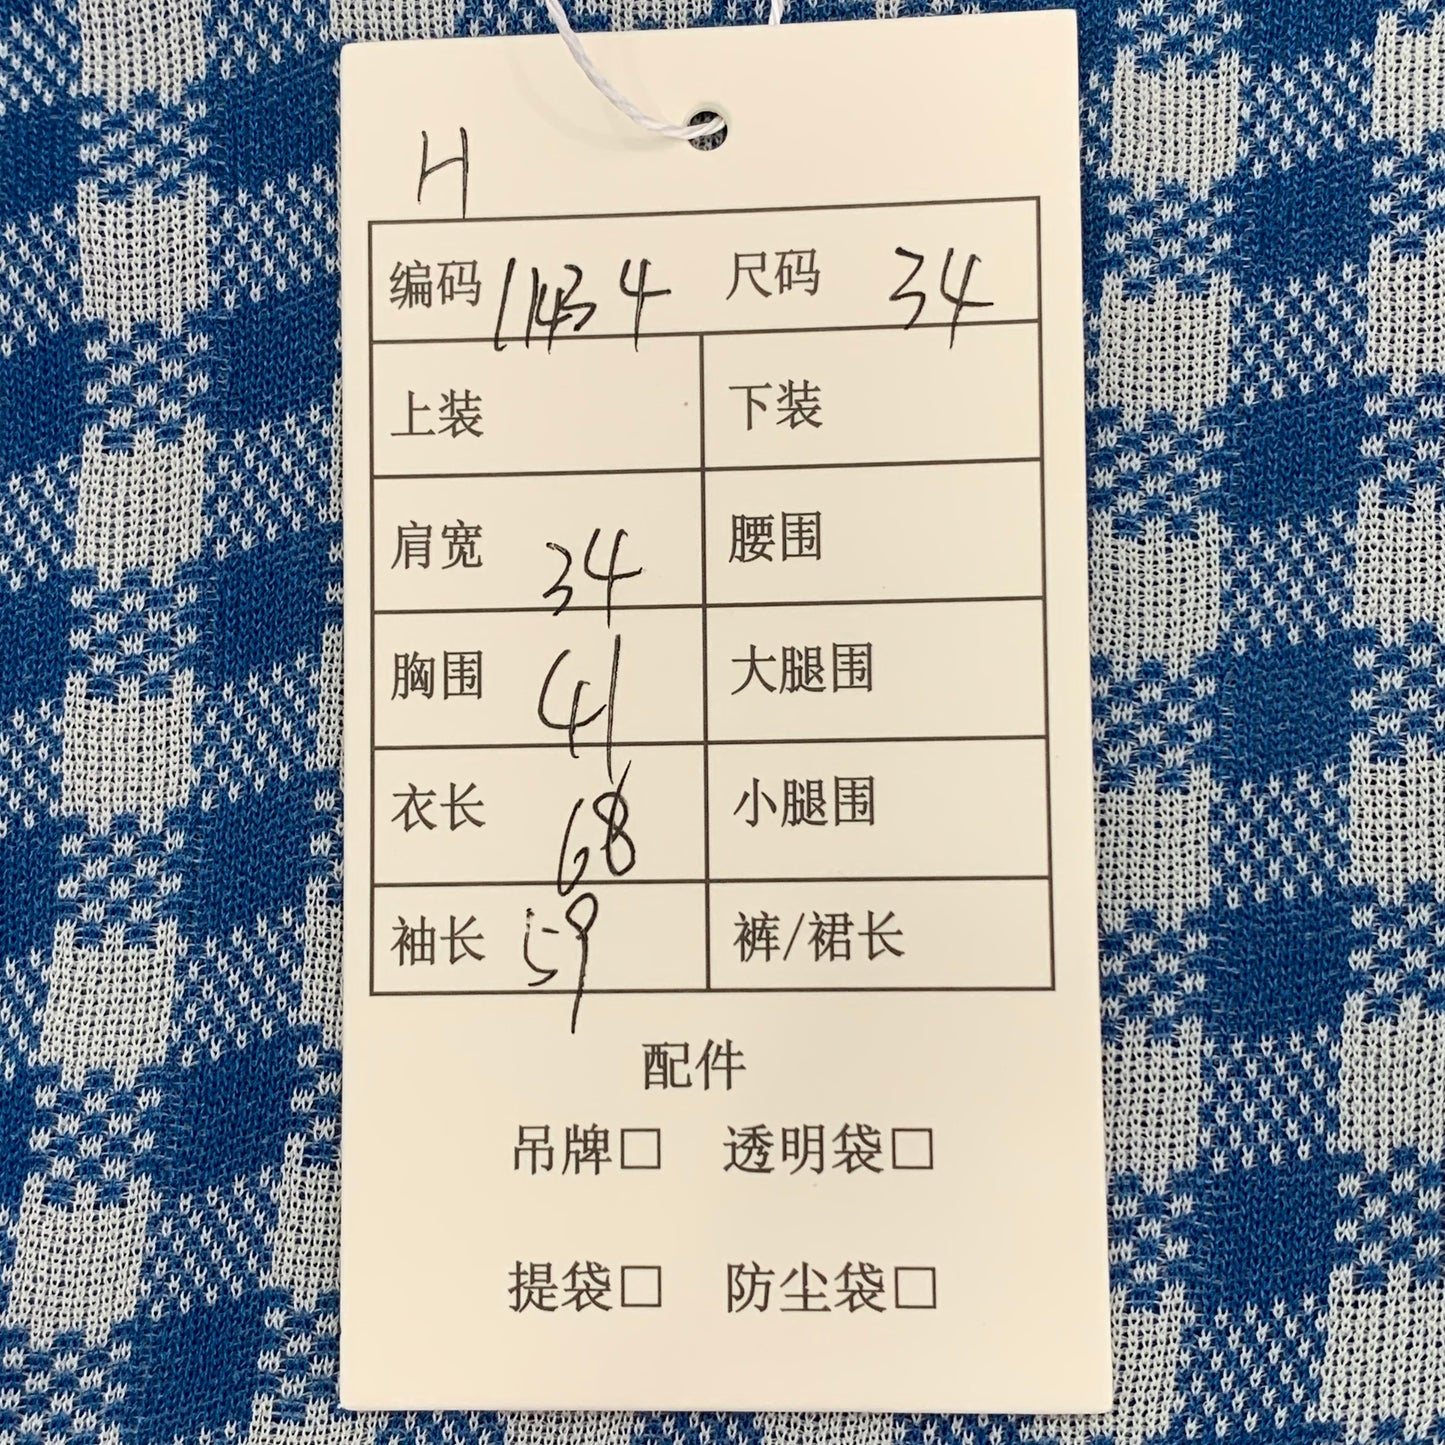 H
编码 11434 尺码 34
上装 下装
肩宽 34 腰围
胸围 41 大腿围
衣长 68 小腿围
袖长 59 裤/裙长
配件
吊牌□ 透明袋□
提袋□ 防尘袋□